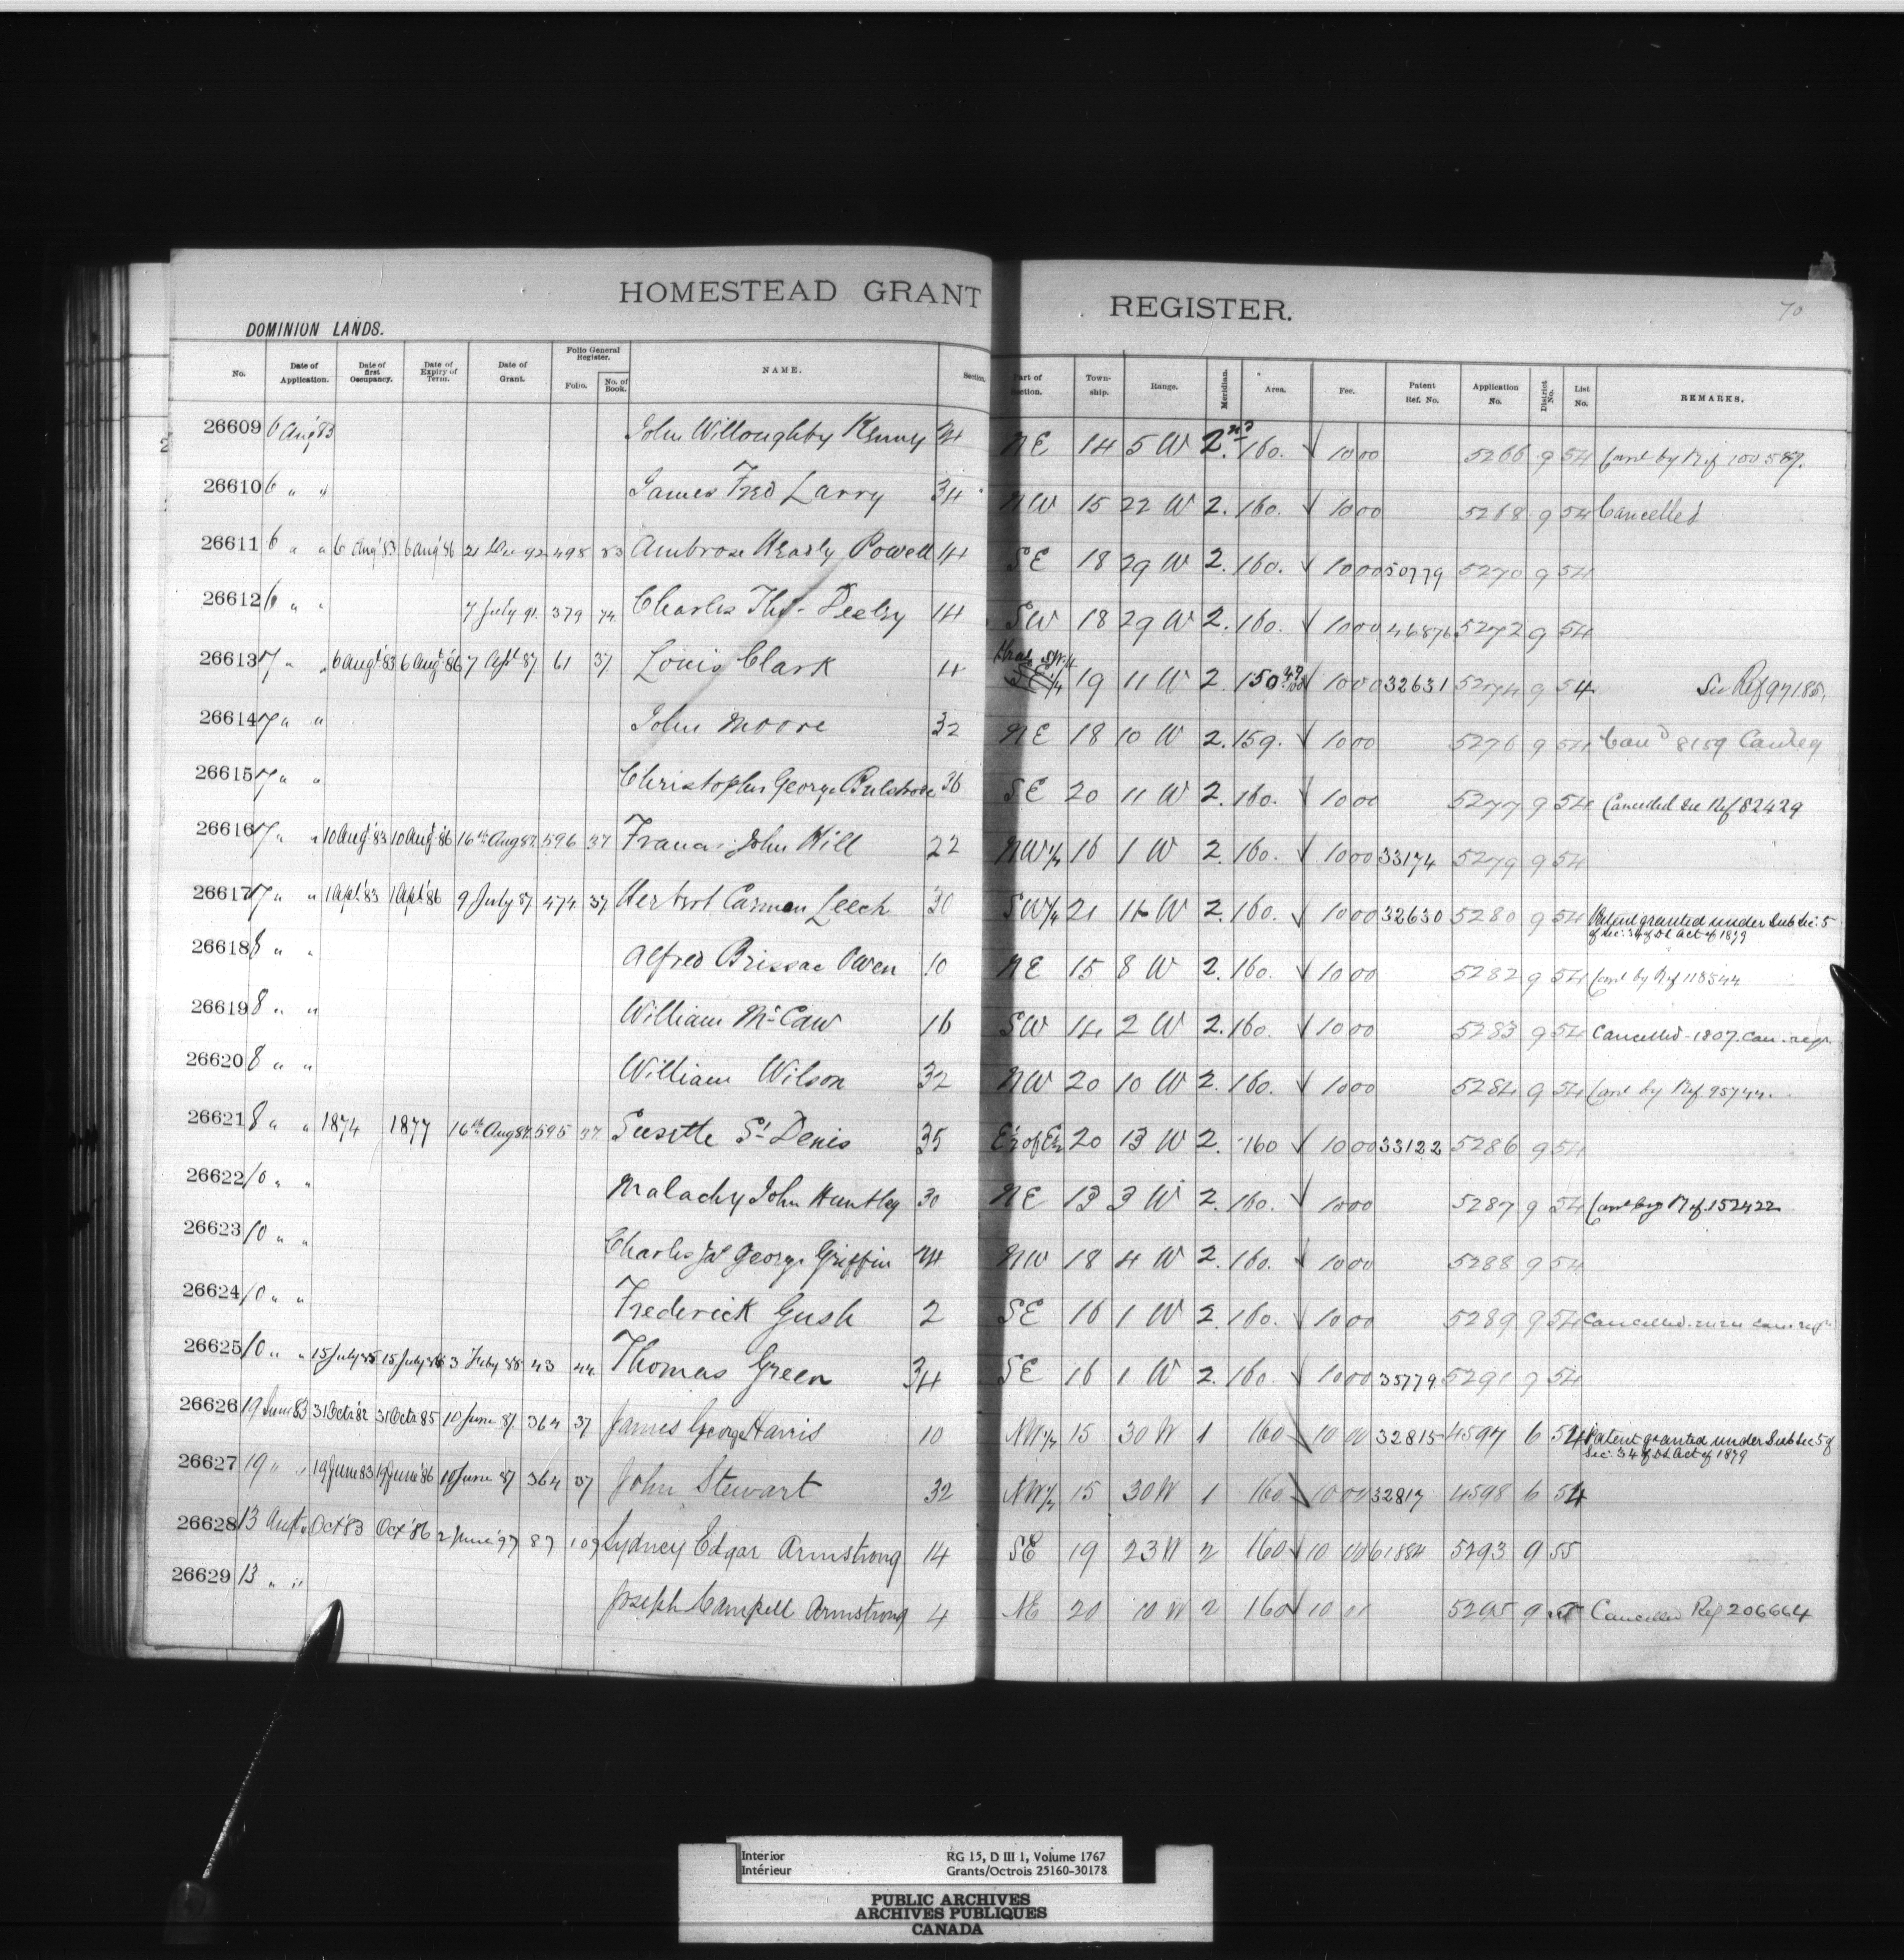 HOMESTEAD GRANT REGISTER.
70
DOMINION LANDS.
No. Date of Application. Date of first Occupancy. Date of Expiry of Term. Date of Grant. Folio General Register. Folio. No. of Book. NAME. Section. Part of Section. Township. Range. Meridian. Area. Fee. Patent Ref. No. Application No. District No. List No. REMARKS.
26609 6 Aug '83 John Willoughby Kenny 24 NE 14 5 W 2nd 160. √ 10 00 5266 9 54 Cancd by Ref 100589.
26610 6 " " James Fred Larry 34 NW 15 22 W 2. 160. √ 10 00 5268 9 54 Cancelled
26611 6 " " 6 Aug '83 6 Aug '86 21 Dec 92 498 83 Ambrose Heasly Powell 14 SE 18 29 W 2. 160. √ 10 00 50779 5270 9 54
26612 6 " " 7 July 91. 379 74 Charles Thos. 14 SW 18 29 W 2. 160. √ 10 00 46876 5272 9 54
26613 7 " " 6 Augt '83 6 Augt '86 7 Sept 87 61 37 Louis Clark 4 Fracl SW 1/4 SE 1/4 19 11 W 2 150 √ 10 00 32631 5274 9 54 See Ref 97185.
26614 7 " " John Moore 32 NE 18 10 W 2. 159. √ 10 00 5276 9 54 Cancd 8159 Can Reg
26615 7 " " Christopher George Bulstrode 36 SE 20 11 W 2. 160. √ 10 00 5277 9 54 Cancelled See Ref 82429
26616 7 " " 10 Augt '83 10 Augt '86 16th Aug 87. 596 37 Francis John Hill 22 NW 1/4 16 1 W 2. 160. √ 10 00 33174 5279 9 54
26617 7 " " 1 Apl. '83 1 Apl '86 9 July 87 474 37 Herbert Carman Leech 30 SW 1/4 21 11 W 2. 160. √ 10 00 32630 5280 9 54 Patent granted under Sub Sec: 5
of Sec: 34 of DL Act of 1879
26618 8 " " Alfred Brissac Owen 10 NE 15 8 W 2. 160. √ 10 00 5282 9 54 Cancd by Ref 118544
26619 8 " " William McCaw 16 SW 14 2 W 2. 160. √ 10 00 5283 9 54 Cancelled - 1807. Can. regr.
26620 8 " " William Wilson 32 NW 20 10 W 2. 160. √ 10 00 5284 9 54 Cancd by Ref. 95744.
26621 8 " " 1874 1877 16th Aug 87. 595 37 Susette St Denis 35 E½ of E½ 20 13 W 2. 160 √ 10 00 33122 5286 9 54
26622 10 " " Malachy John Huntley 30 NE 13 3 W 2. 160. √ 10 00 5287 9 54 Cancd by Ref. 152422
26623 10 " " Charles Jas George Griffin 24 NW 18 4 W 2. 160. √ 10 00 5288 9 54
26624 10 " " Frederick Gush 2 SE 16 1 W 2. 160. √ 10 00 5289 9 54 Cancelled. can. regr
26625 10 " " 15 July 85 15 July 88 3 Feby 88 43 44 Thomas Green 34 SE 16 1 W 2. 160. √ 10 00 35779 5291 9 54
26626 19 June 83 31 Octr '82 31 Octr 85 10 June 87. 364 37 James George Harris 10 NW 1/4 15 30 W 1 160 10 00 32815 4597 6 54 Patent granted under Sub Sec 5 of
Sec: 34 of DL Act of 1879
26627 19 " " 19 June 83 19 June '86 10 June 87 364 37 John Stewart 32 NW 1/4 15 30 W 1 160 10 00 32817 4598 6 54
26628 13 Augt " Oct '83 Oct '86 2 June '97 87 109 Sydney Edgar Armstrong 14 SE 19 23 W 2 160 √ 10 00 61884 5293 9 55
26629 13 " " Joseph Campell Armstrong 4 NE 20 10 W 2 160 √ 10 00 5295 9 55 Cancelled Ref 206664
Interior
Intérieur
RG 15, D III 1, Volume 1767
Grants/Octrois 25160-30178
PUBLIC ARCHIVES
ARCHIVES PUBLIQUES
CANADA